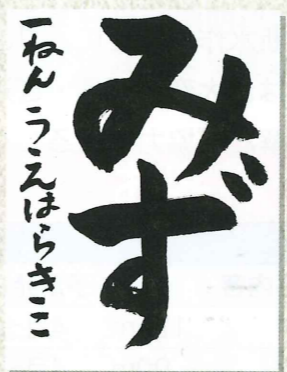 みず
一ねん うえはらきこ